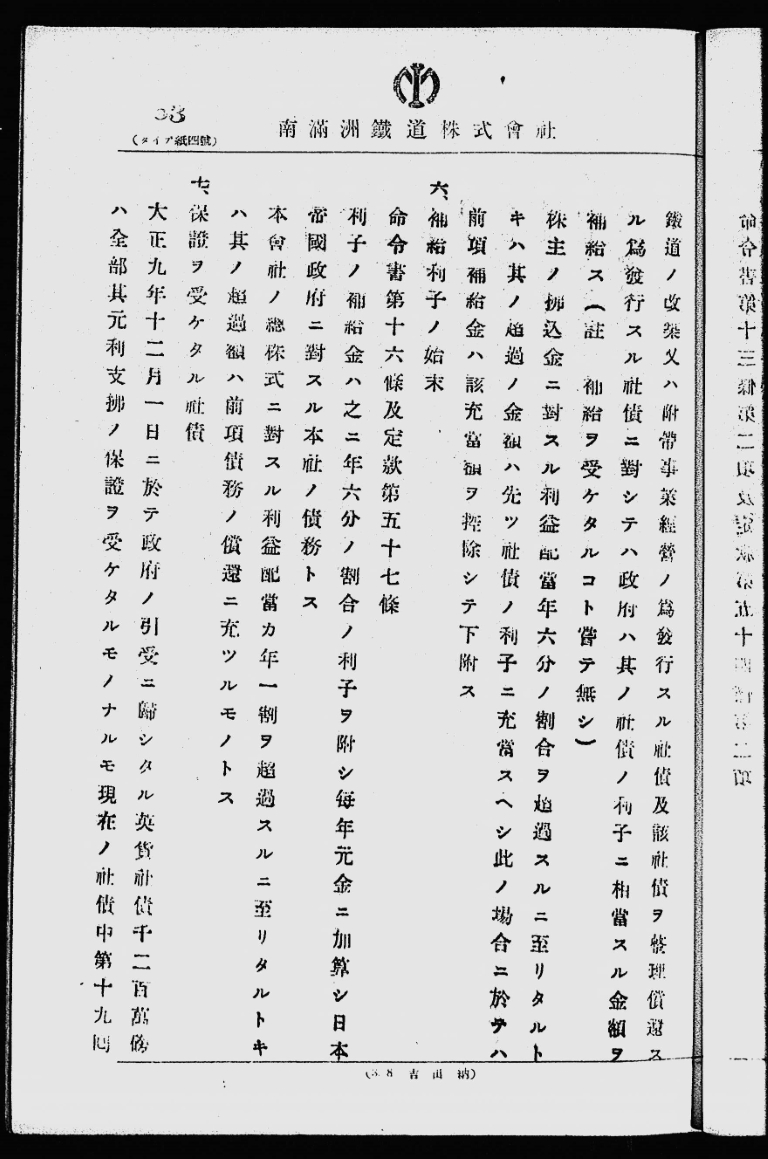 南滿洲鐵道株式會社
(タイプ紙四號)
鐵道ノ改築又ハ附帶事業經營ノ爲發行スル社債及該社債ヲ整理償還ス
ル爲發行スル社債ニ對シテハ政府ハ其ノ社債ノ利子ニ相當スル金額ヲ
補給ス(註 補給ヲ受ケタルコト嘗テ無シ)
株主ノ拂込金ニ對スル利益配當年六分ノ割合ヲ超過スルニ至リタルト
キハ其ノ超過ノ金額ハ先ツ社債ノ利子ニ充當スヘシ此ノ場合ニ於テハ
前項補給金ハ該充當額ヲ控除シテ下附ス
六、補給利子ノ始末
命令書第十六條及定款第五十七條
利子ノ補給金ハ之ニ年六分ノ割合ノ利子ヲ附シ每年元金ニ加算シ日本
帝國政府ニ對スル本社ノ債務トス
本會社ノ總株式ニ對スル利益配當カ年一割ヲ超過スルニ至リタルトキ
ハ其ノ超過額ハ前項債務ノ償還ニ充ツルモノトス
七、保證ヲ受ケタル社債
大正九年十二月一日ニ於テ政府ノ引受ニ歸シタル英貨社債千二百萬磅
ハ全部其元利支拂ノ保證ヲ受ケタルモノナルモ現在ノ社債中第十九回
命令書第十三條第二項及定款第五十四條第二項